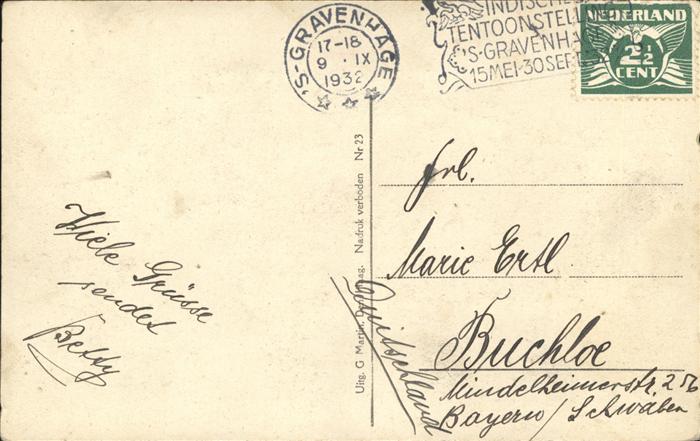 'S-GRAVENHAGE
17-18
9 IX
1932
INDISCHE
TENTOONSTELLING
'S-GRAVENHA
15 MEI-30 SEP
NEDERLAND
2½
CENT
Viele Grüsse
sendet
Betty
Uitg. G Martin, D Haag. Nadruk verboden Nr 23
Frl.
Marie Ertl
Buchloe
Mindelheimerstr. 2
Bayern / Schwaben
Deutschland